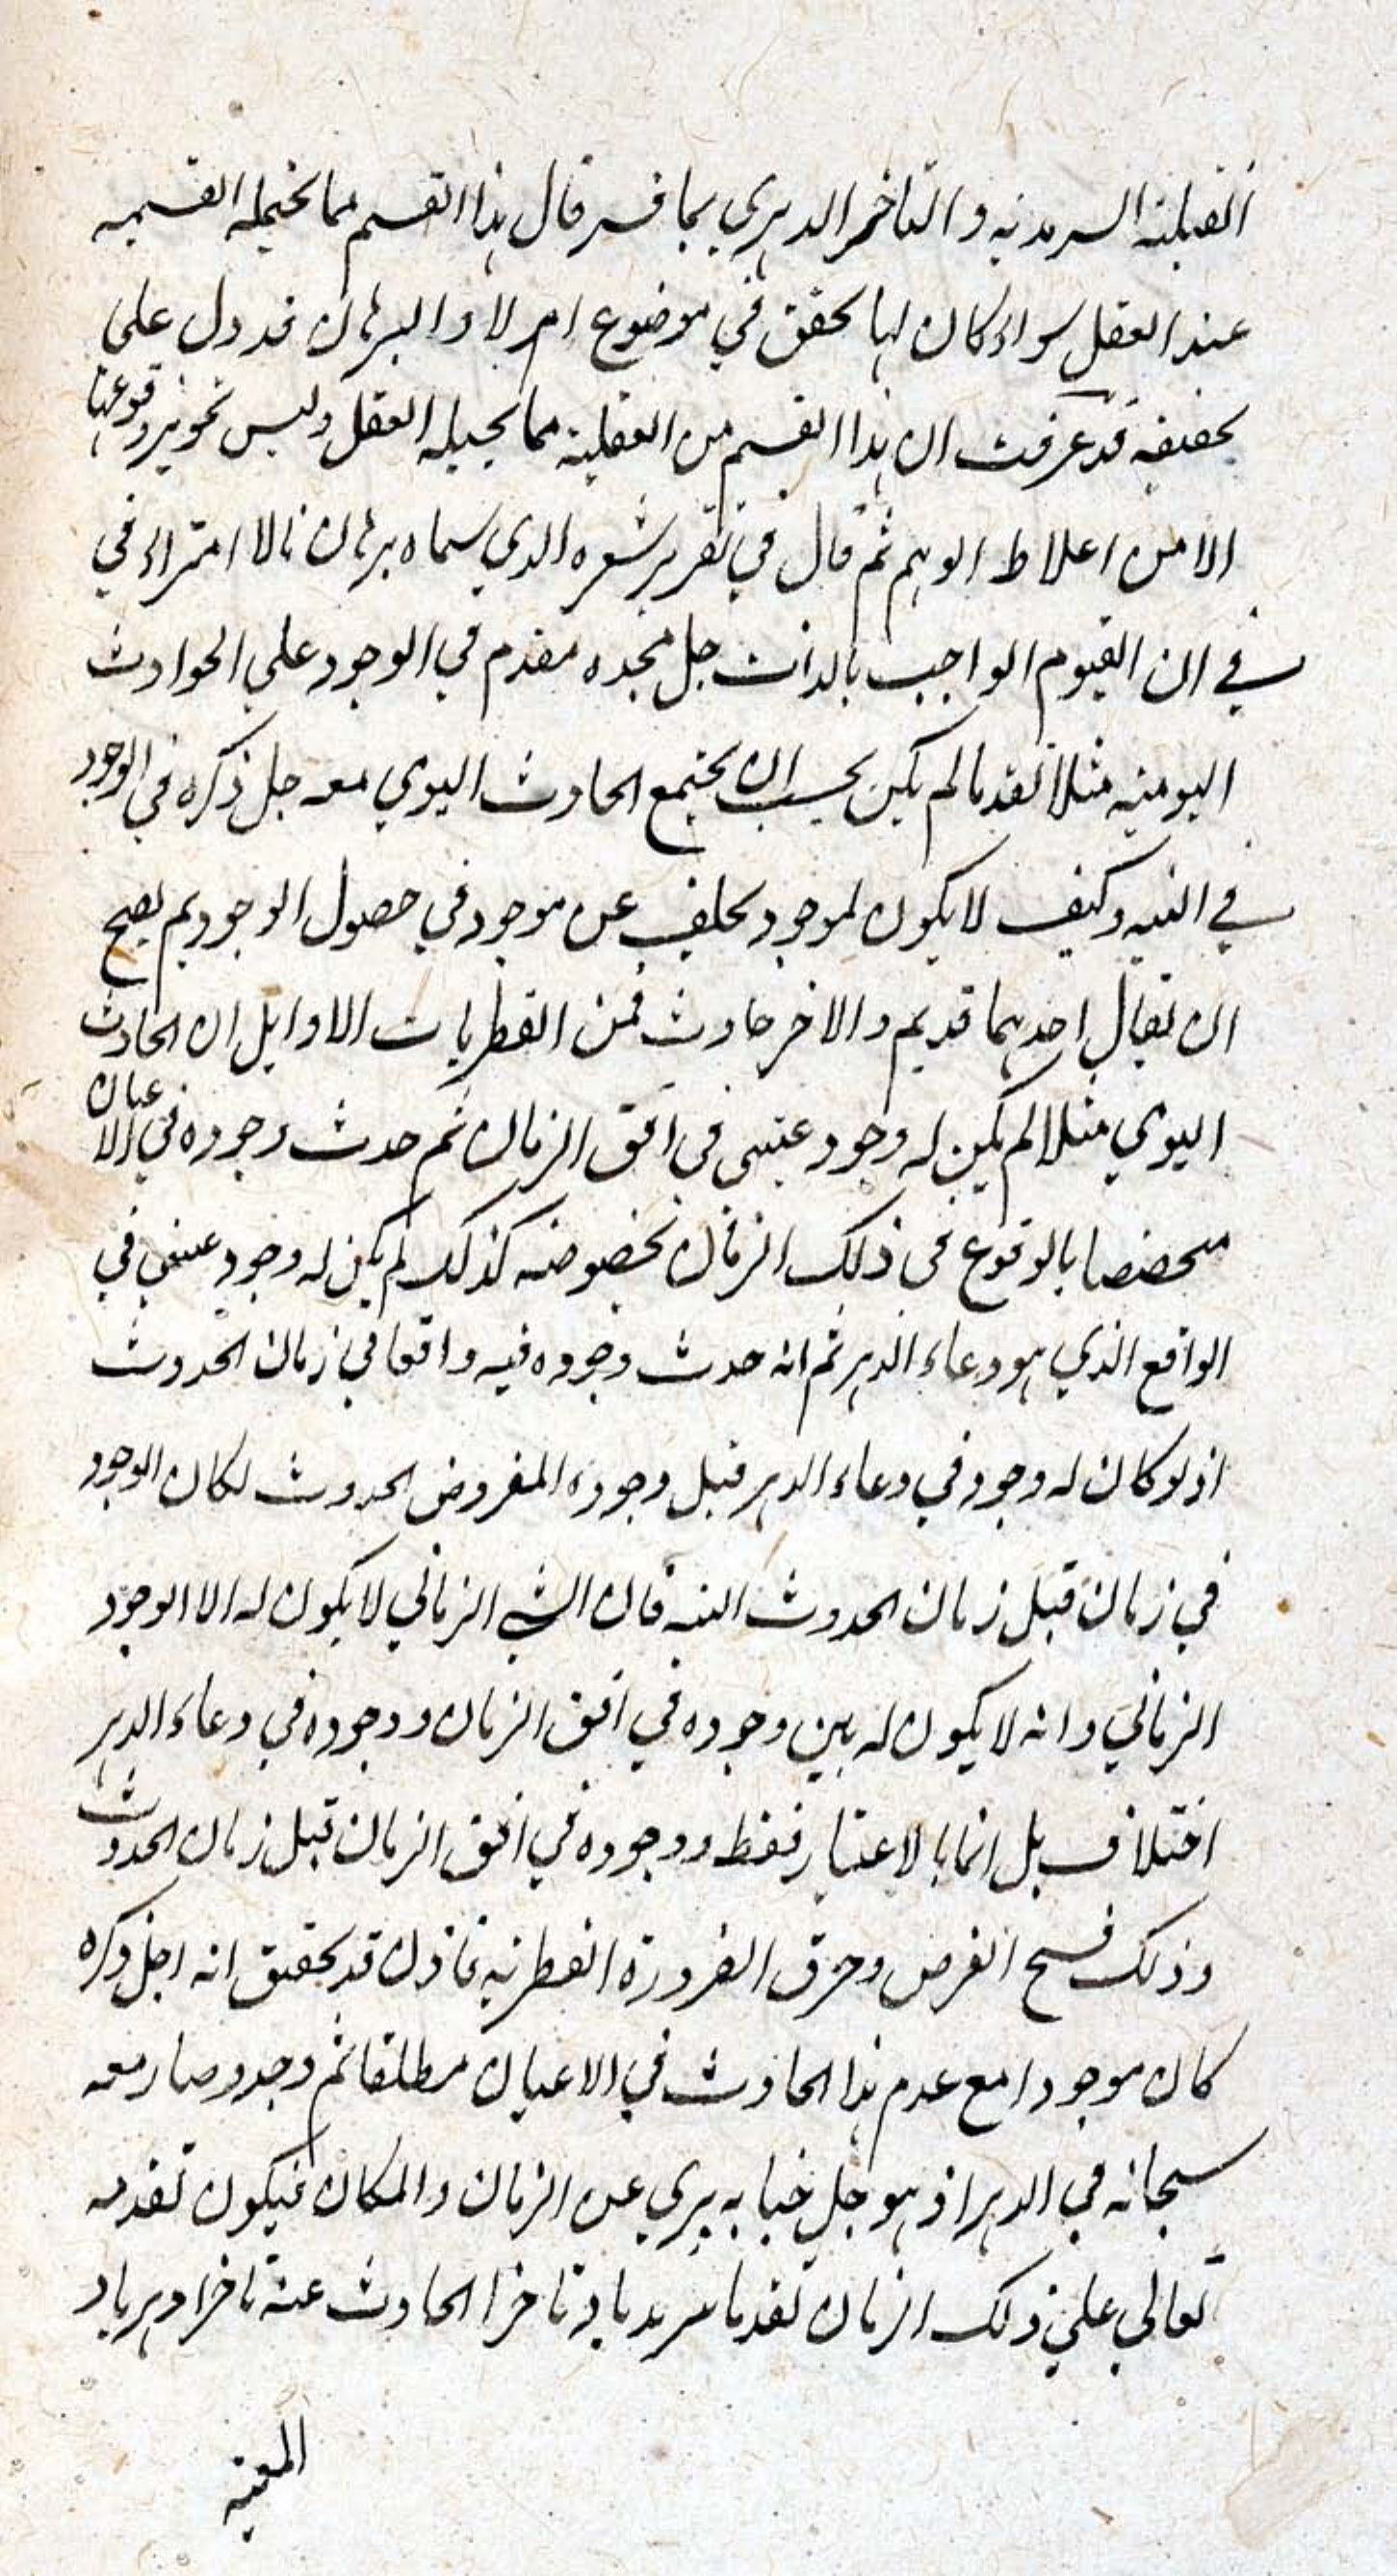 القبلية السرمدية والتاخر الدهري بما فسر قال هذا القسم مما يحتمله القسمه
عند العقل سواء كان لها تحقق في موضوع ام لا والبرهان قد دل على
تحققه قد عرفت ان هذا القسم من القبلية مما يحيله العقل وليس تجويز وقوعها
الا من اغلاط الوهم ثم قال في تقرير شعره الذي سماه برهانا لا امتراء في
في ان القيوم الواجب بالذات جل مجده مقدم في الوجود على الحوادث
اليومية مثلا تقدما لم يكن بحسبه ان يجتمع الحادث اليومي معه جل ذكره في الوجود
في البته وكيف لا يكون لموجود تخلف عن موجود في حصول الوجود ثم يصح
ان يقال احدهما قديم والاخر حادث فمن الفطريات الاوايل ان الحادث
اليومي مثلا لم يكن له وجود عيني في افق الزمان ثم حدث وجوده في الاعيان
مختصا بالوقوع في ذلك الزمان بخصوصه كذلك لم يكن له وجود عيني في
الواقع الذي هو وعاء الدهر ثم انه حدث وجوده فيه واقعا في زمان الحدوث
اذ لو كان له وجود في وعاء الدهر قبل وجوده المفروض الحدوث لكان الوجود
في زمان قبل زمان الحدوث البته فان الشي الزماني لا يكون له الا الوجود
الزماني وانه لا يكون له بين وجوده في افق الزمان ووجوده في وعاء الدهر
اختلاف بل انما بالاعتبار فقط ووجوده في افق الزمان قبل زمان الحدوث
وذلك فسخ الفرض وخرق الضرورة الفطرية فاذن قد تحقق انه اجل ذكره
كان موجودا مع عدم هذا الحادث في الاعيان مطلقا ثم وجد وصار معه
سبحانه في الدهر اذ هو جل جنابه بري عن الزمان والمكان فيكون تقدمه
تعالى على ذلك الزمان تقدما سرمديا وتاخر الحادث عنه تاخرا دهريا و
المعية